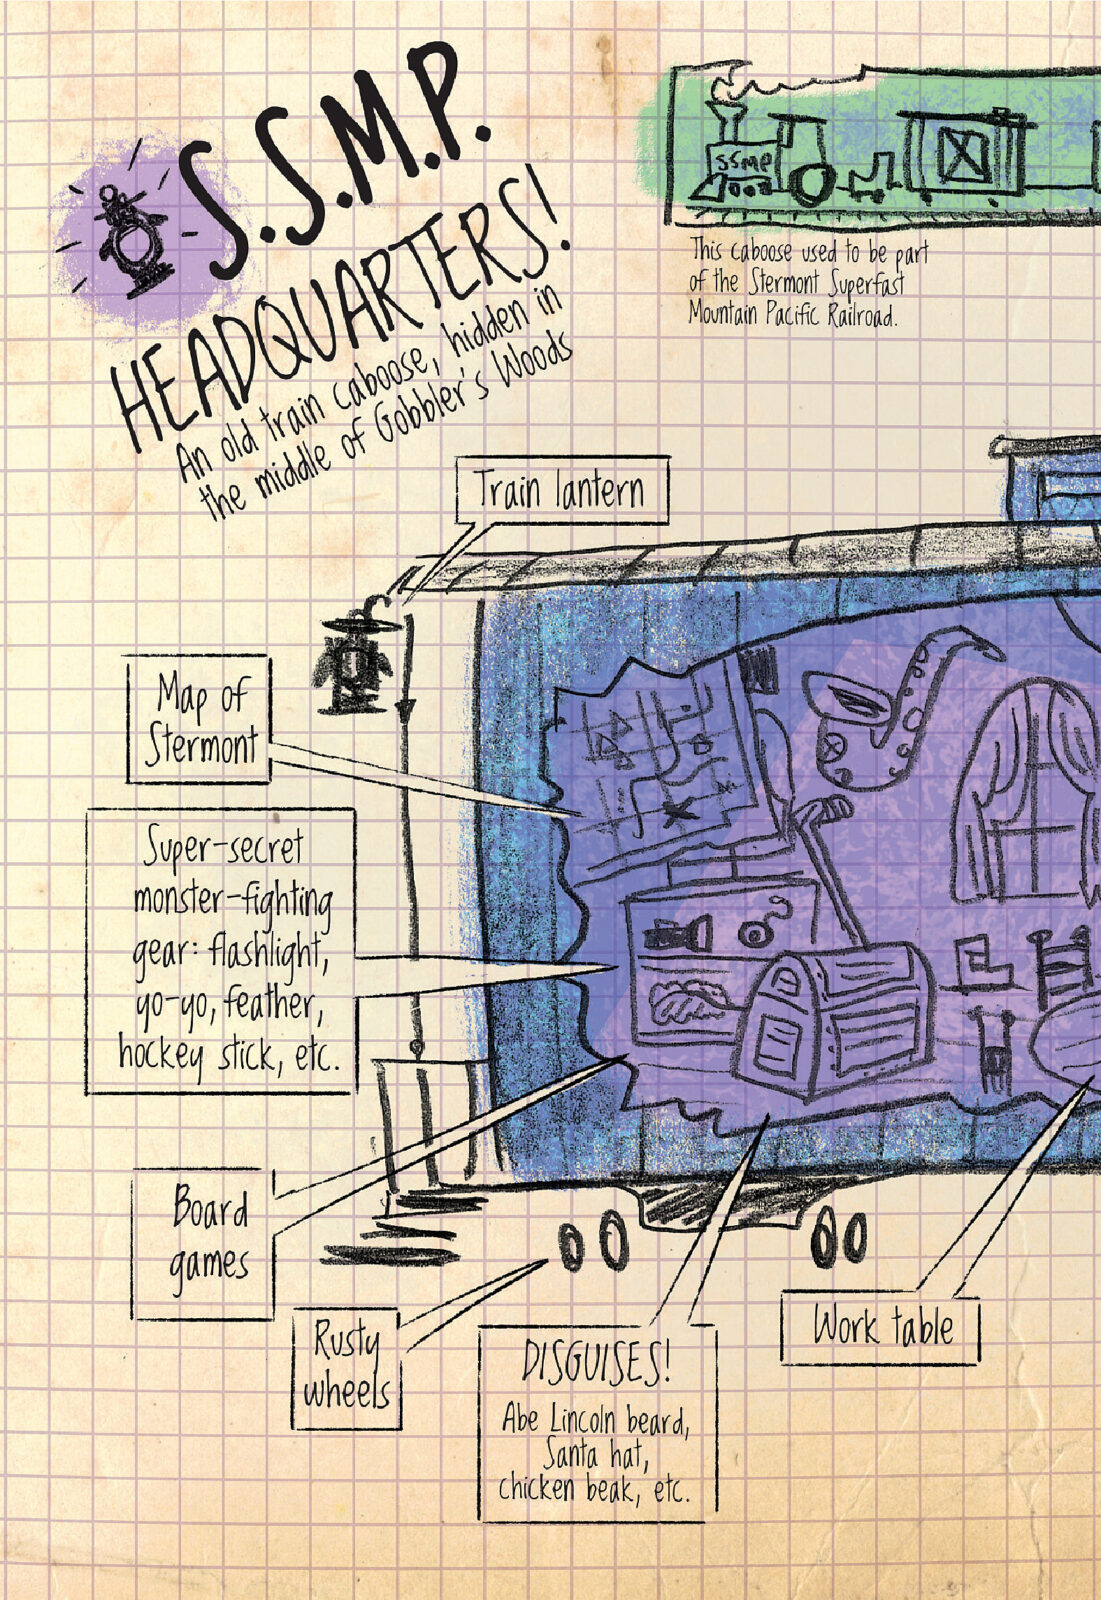 S.S.M.P.
HEADQUARTERS!
An old train caboose, hidden in
the middle of Gobbler's Woods
SSMP
This caboose used to be part
of the Stermont Superfast
Mountain Pacific Railroad.
Train lantern
Map of
Stermont
Super-secret
monster-fighting
gear: flashlight,
yo-yo, feather,
hockey stick, etc.
Board
games
Rusty
wheels
DISGUISES!
Abe Lincoln beard,
Santa hat,
chicken beak, etc.
Work table